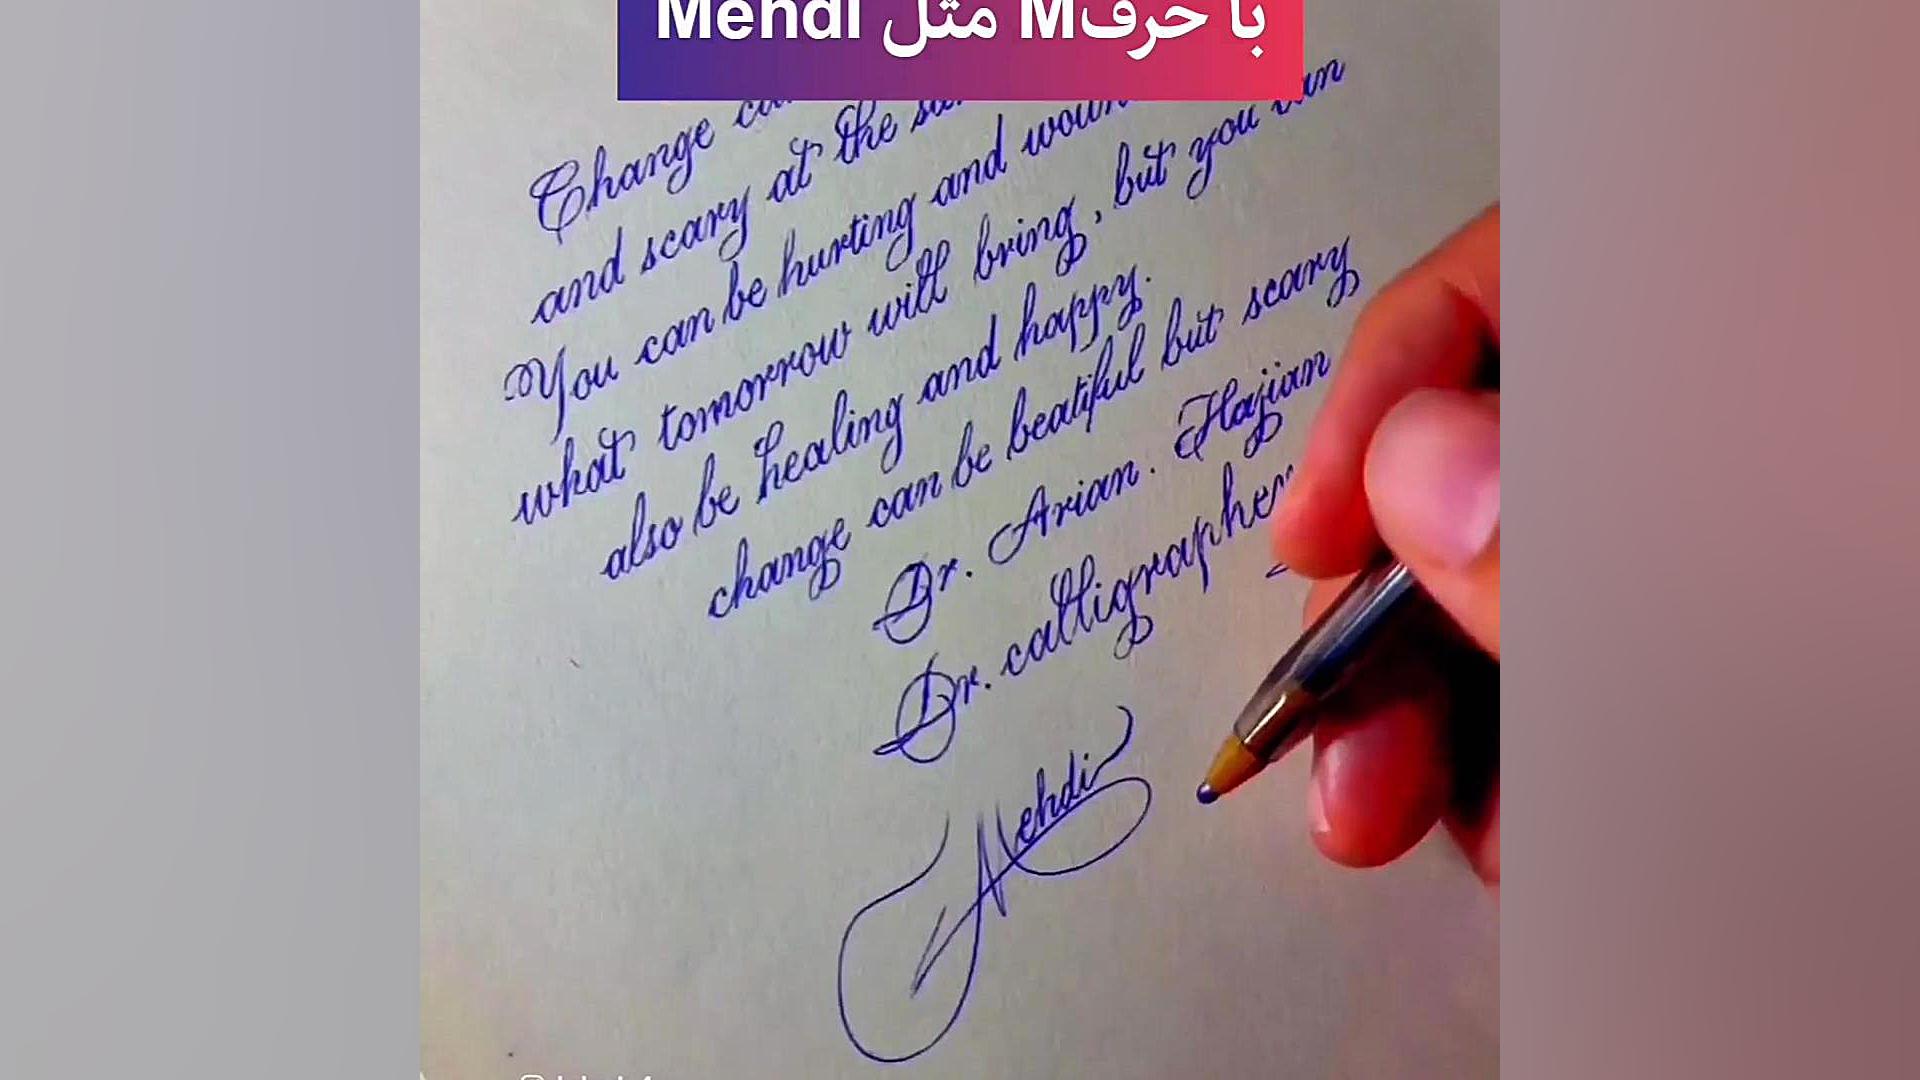 با حرف M مثل Mehdi
Change
and scary at the
You can be hurting and
what tomorrow will bring, but you can
also be healing and happy.
change can be beatiful but scary
Dr. Arian. Hajian
Dr. calligrapher
Mehdi